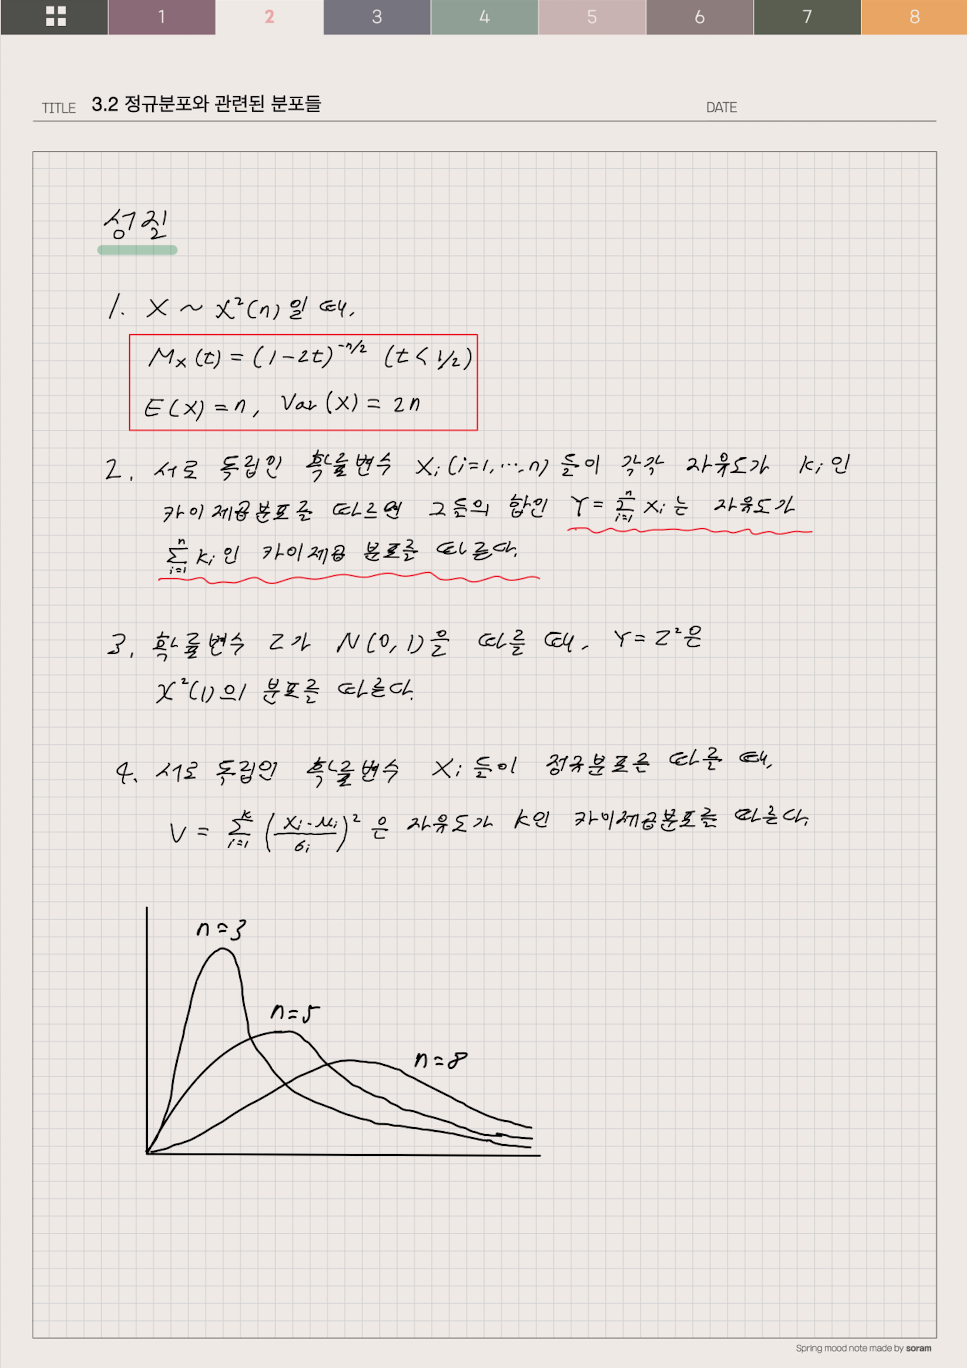 1 2 3 4 5 6 7 8
TITLE 3.2 정규분포와 관련된 분포들 DATE
성질
1. X ~ χ²(n)일 때,
Mx(t) = (1-2t)^{-n/2} (t < 1/2)
E(X) = n, Var(X) = 2n
2. 서로 독립인 확률변수 Xi(i=1,…,n)들이 각각 자유도가 ki인
카이제곱분포를 따르면 그들의 합인 Y = \sum_{i=1}^{n} Xi는 자유도가
\sum_{i=1}^{n} ki인 카이제곱 분포를 따른다.
3. 확률변수 Z가 N(0,1)을 따를 때, Y = Z²은
χ²(1)의 분포를 따른다.
4. 서로 독립인 확률변수 Xi들이 정규분포를 따를 때,
V = \sum_{i=1}^{k} (\frac{Xi-μi}{σi})² 은 자유도가 k인 카이제곱분포를 따른다.
n=3
n=5
n=8
Spring mood note made by soram